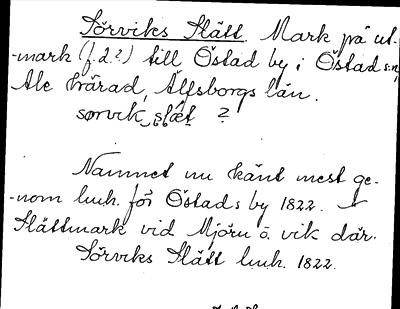 Sörviks Slätt. Mark på ut-
-mark (f.d.?) till Östad by i Östad s:n,
Ale härad, Älfsborgs län.
sørvik slæt ?
Namnet nu känt mest ge-
-nom lmh. för Östads by 1822.
Slättmark vid Mjörn o. vik där.
Sörviks Slätt lmh. 1822.